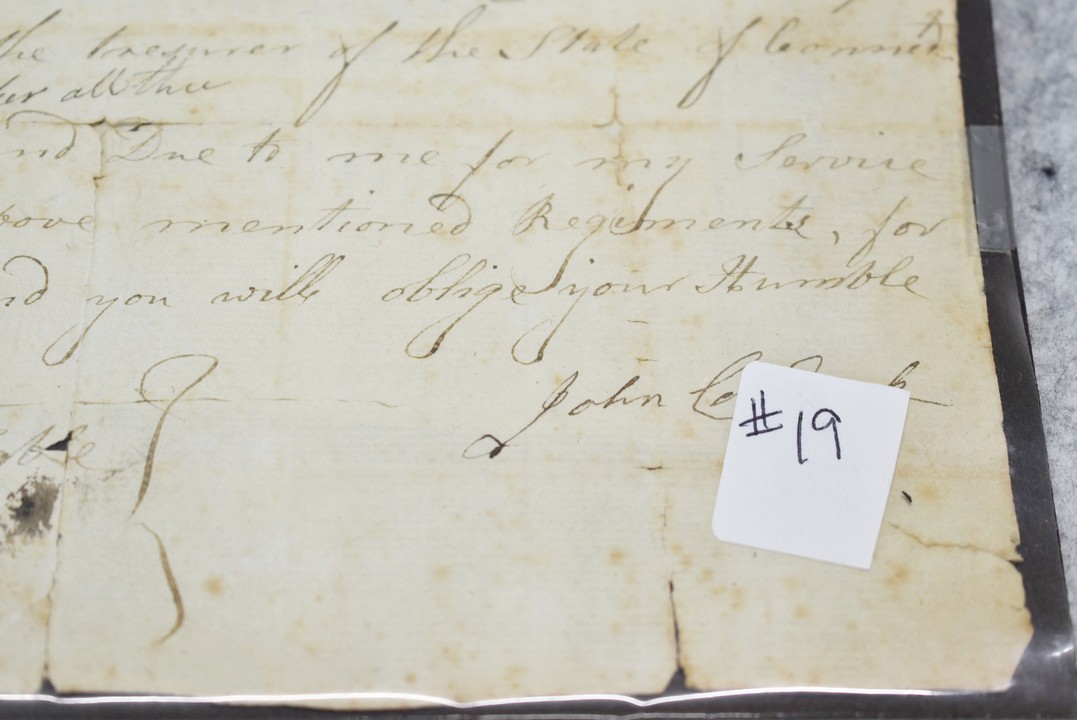 the treasurer of the State of Connect
all the
nd Due to me for my Service
bove mentioned Regiments, for
nd you will oblige your Humble
John
#19